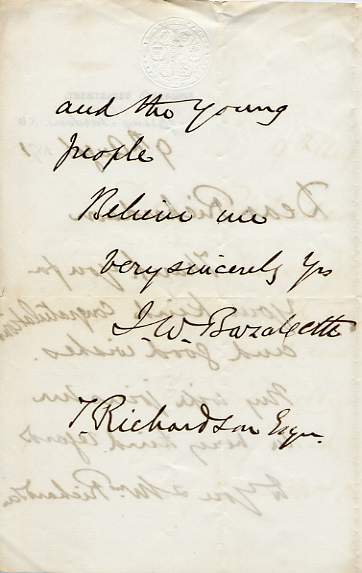 and the young
people
Believe me
very sincerely Yrs
J. W. Bazalgette
T. Richardson Esqre.